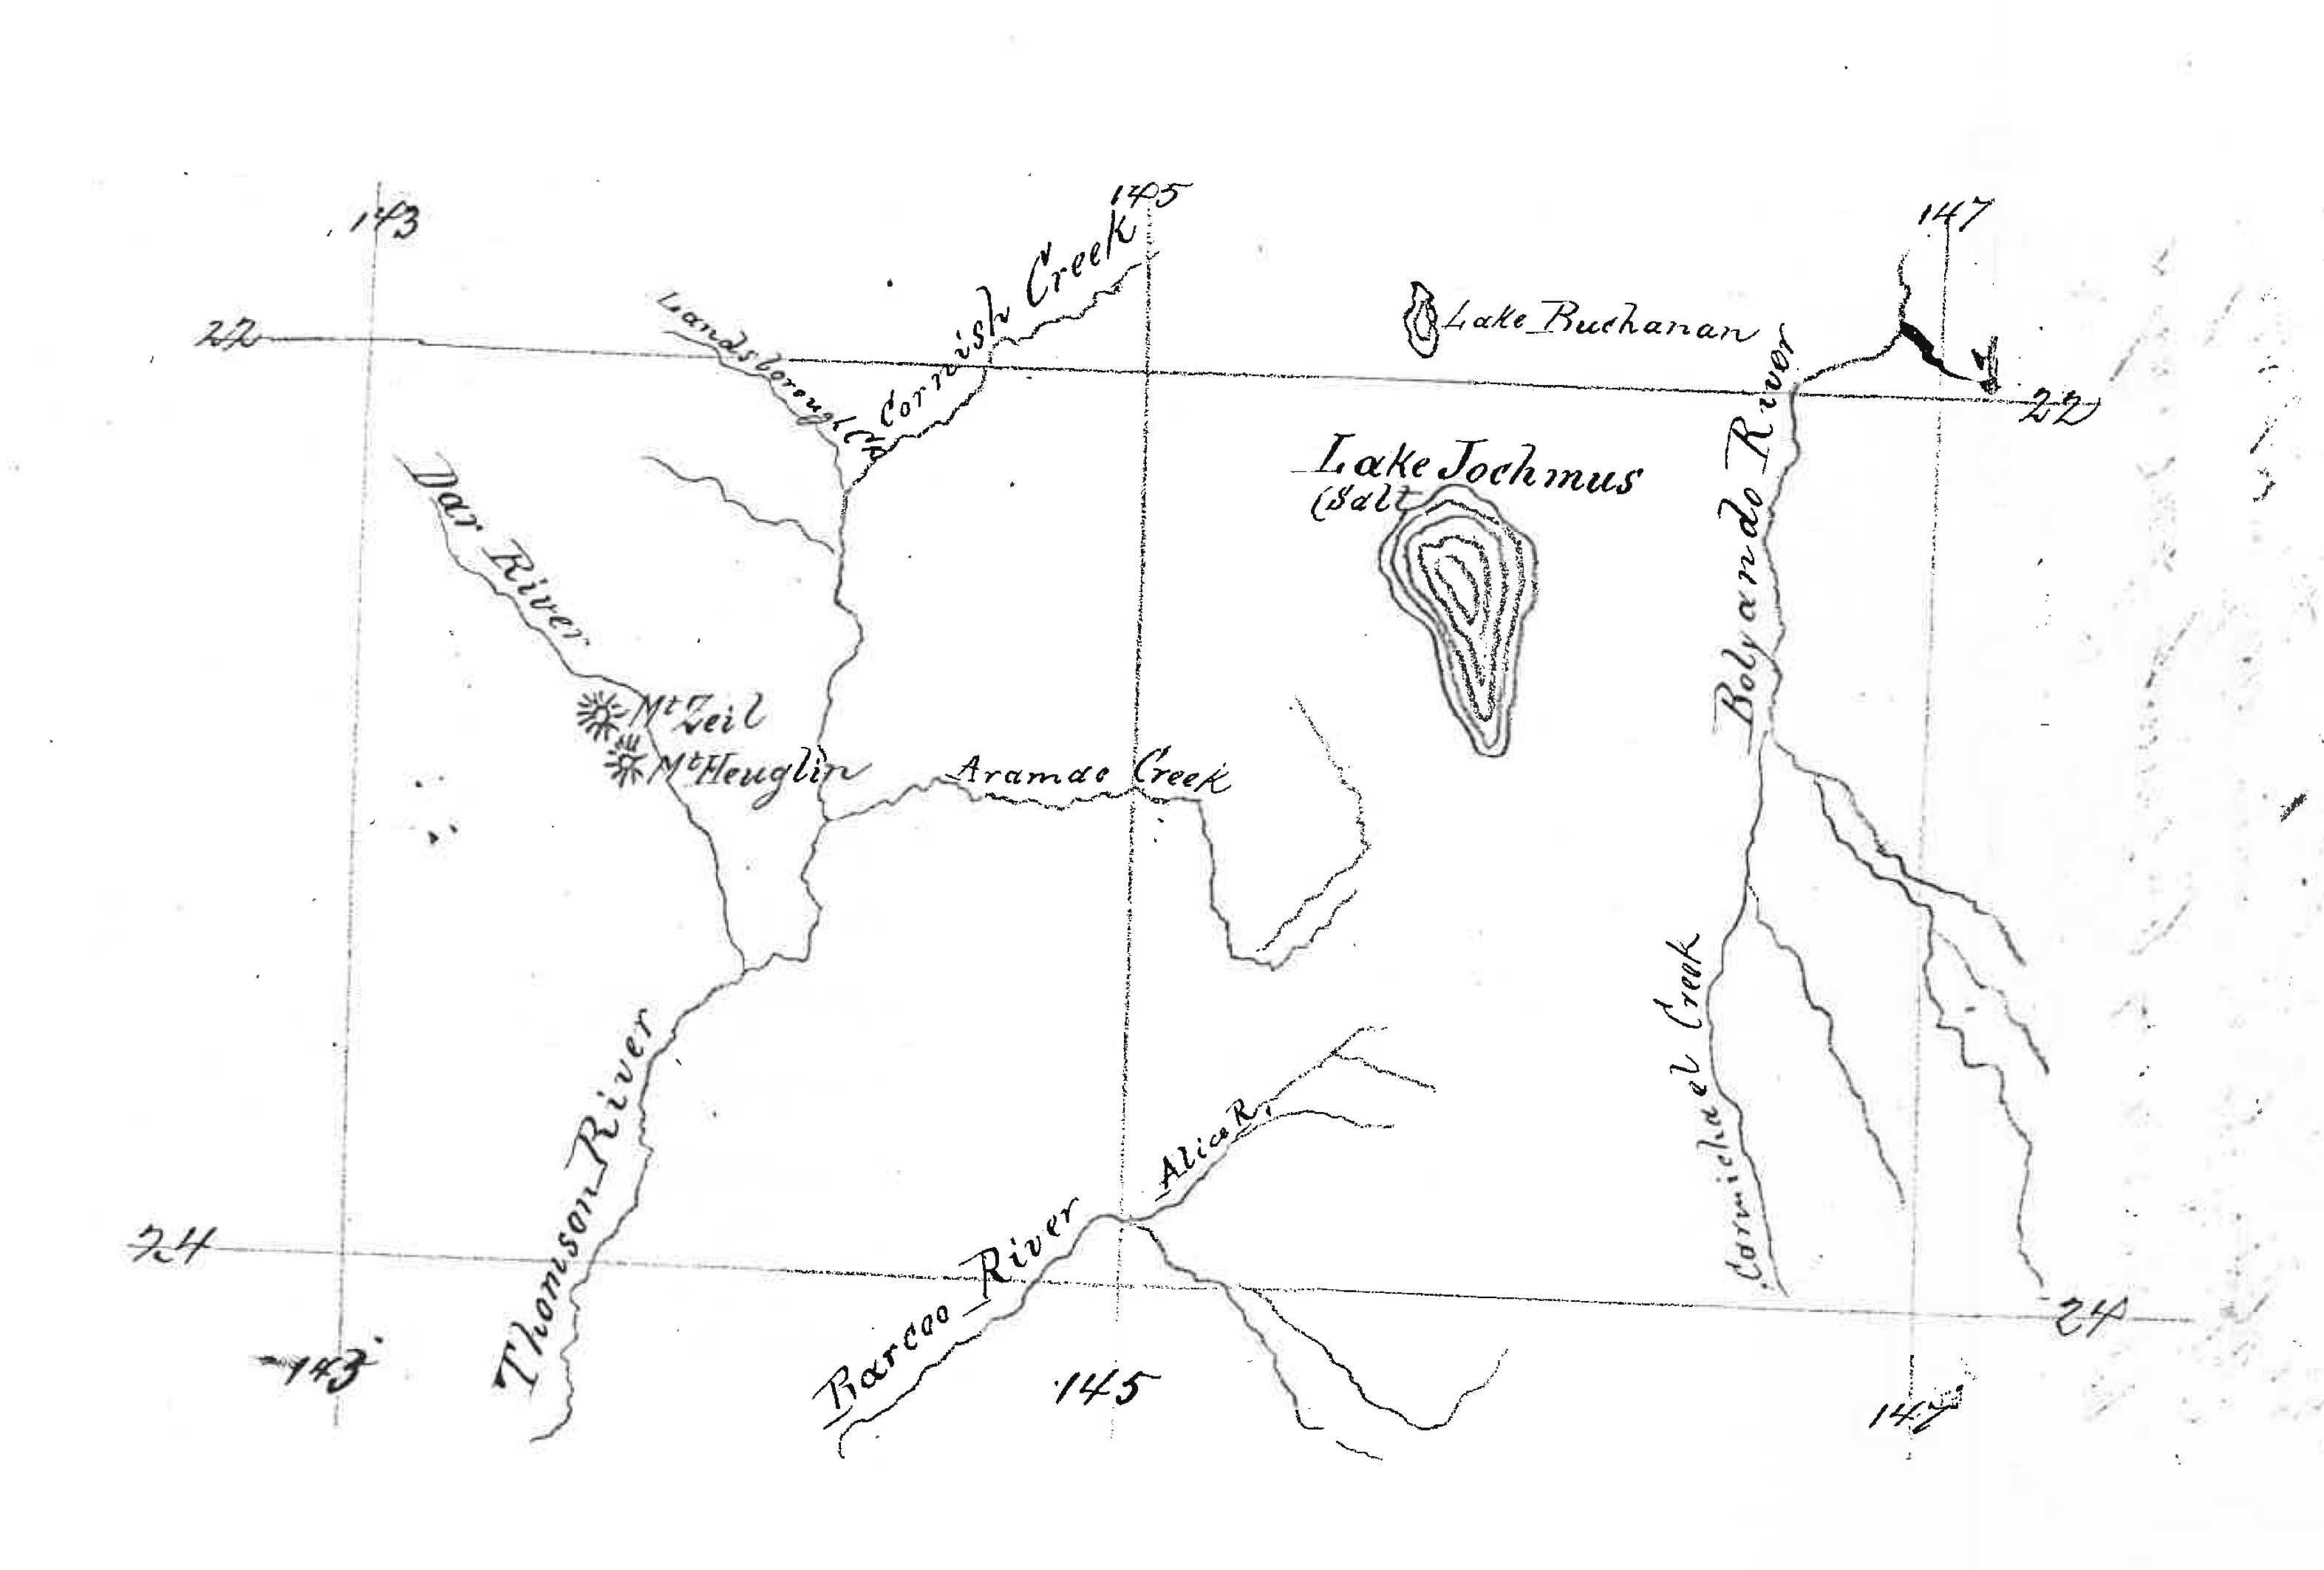 143
145
147
22
Landsborough Ck
Cornish Creek
Lake Buchanan
22
Lake Jochmus
(Salt
Dar River
Bolyando River
Mt Zeil
Mt Heuglin
Aramac Creek
Thomson River
Alice R.
Carmichael Creek
Barcoo River
24
24
143
145
147